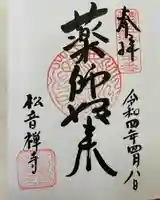 奉拝
令和四年四月八日
薬師如来
松音禅寺